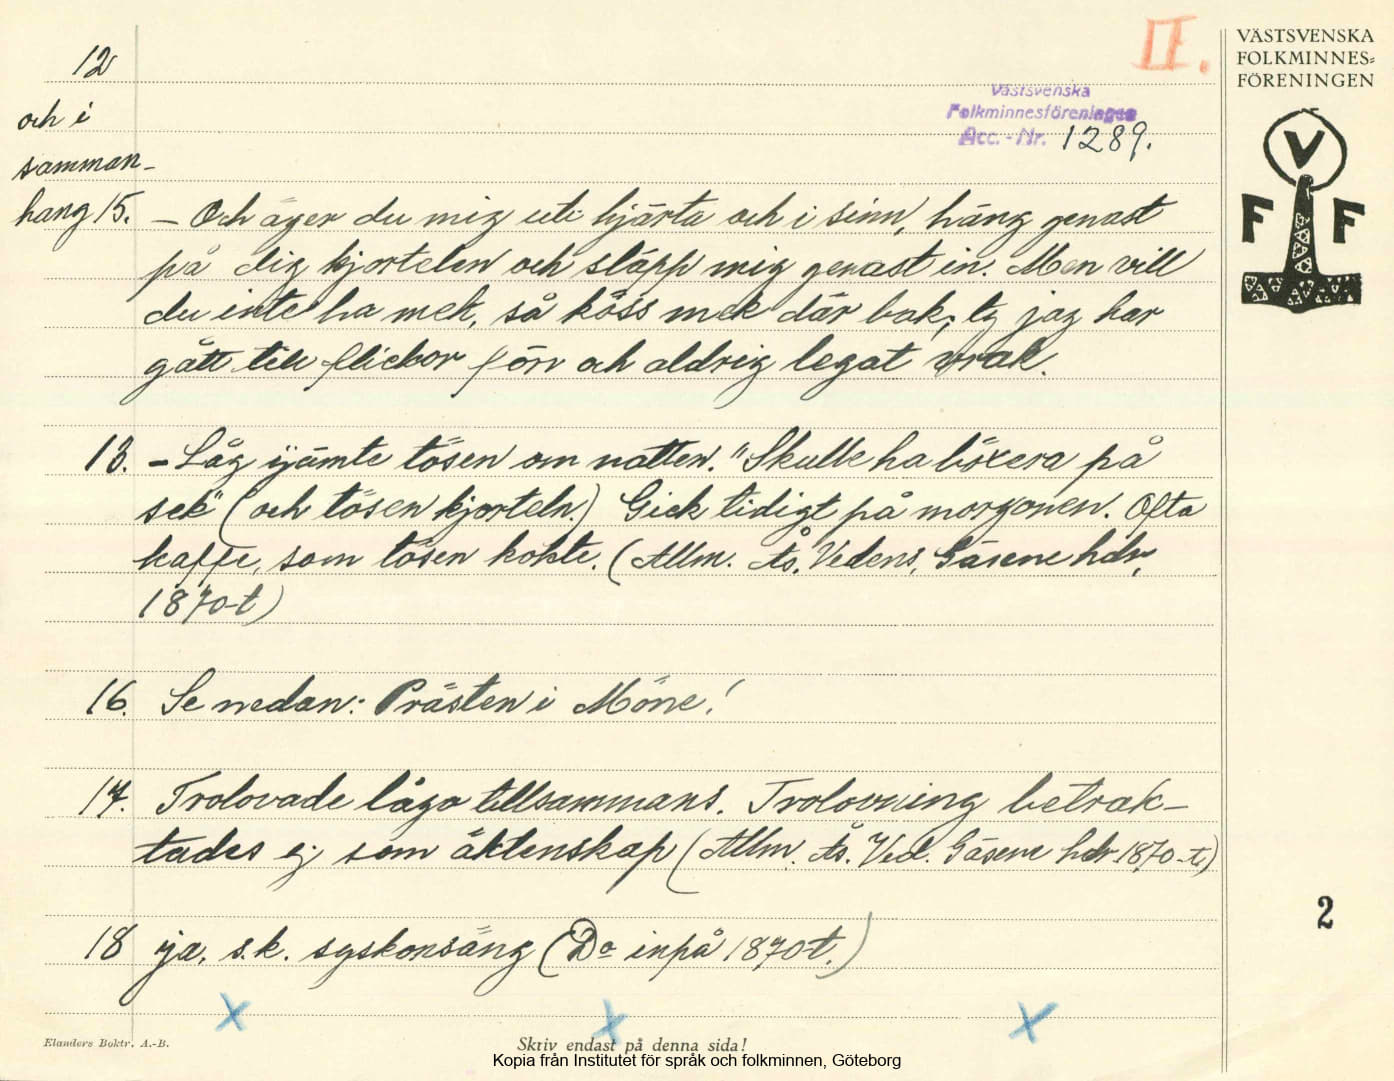 II.
VÄSTSVENSKA
FOLKMINNES=
FÖRENINGEN
V
F F
Västsvenska
Folkminnesföreningen
Acc. - Nr. 1289.
12
och i
samman-
hang 15. - Och äger du mig uti hjärta och i sinn, häng genast
på dig kjortelen och släpp mig genast in. Men vill
du inte ha mek, så köss mek där bak, ty jag har
gått till flickor förr och aldrig legat vrak.
13. - Låg jämte tösen om natten. "Skulle ha böxera på
sek" (och tösen kjorteln.) Gick tidigt på morgonen. Ofta
kaffe, som tösen kokte. (Allm. Ås, Vedens, Gäsene hdr,
1870-t)
16. Se nedan: Prästen i Möne!
17. Trolovade lågo tillsammans. Trolovning betrak-
tades ej som äktenskap (Allm. Ås. Ved. Gäsene hdr 1870-t)
18 ja, s.k. syskonsäng (Do inpå 1870-t.)
2
Elanders Boktr. A.-B.
Skriv endast på denna sida!
Kopia från Institutet för språk och folkminnen, Göteborg